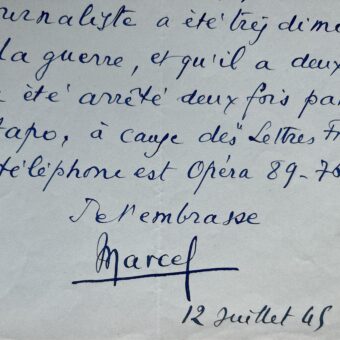 urnaliste a été très dime
la guerre, et qu'il a deux
été arrêté deux fois par
tapo, à cause des "Lettres Fr
téléphone est Opéra 89-76
Je t'embrasse
Marcel
12 Juillet 45